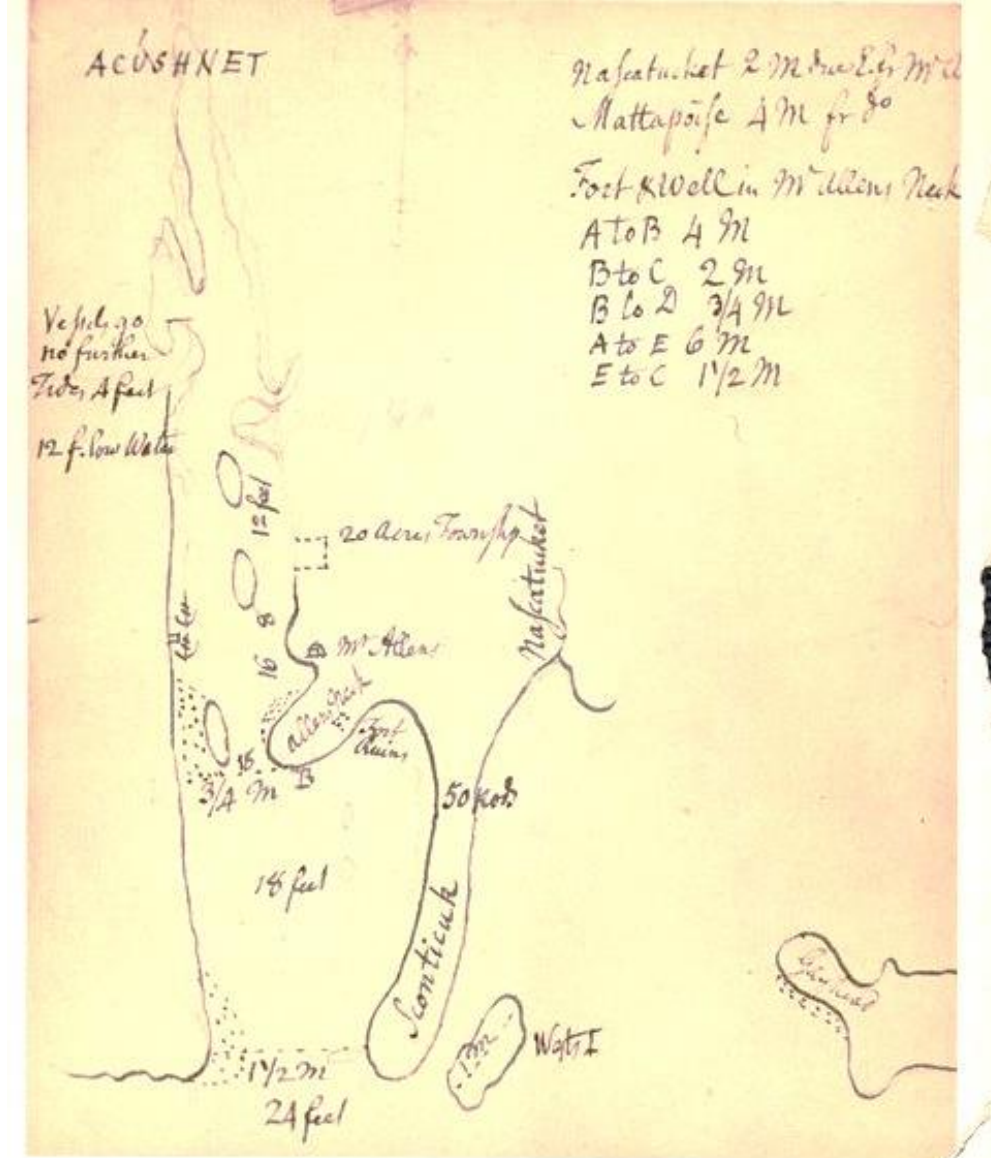 ACUSHNET
Nascatucket 2 M due E. fr Mr
Mattapoise 4 M fr do
Fort & Well in Mr Allens Neck
A to B 4 M
B to C 2 M
B to D 3/4 M
A to E 6 M
E to C 1 1/2 M
Vessels go
no further
Tides 4 feet
12 f. low Water
12 feet
20 Acres Township
Nascatucket
8
Mr Allens
16
allens neck
Fort
Ruins
18
B
3/4 M
50 Rods
18 feet
Sconticuk
West I
1 1/2 M
24 feet